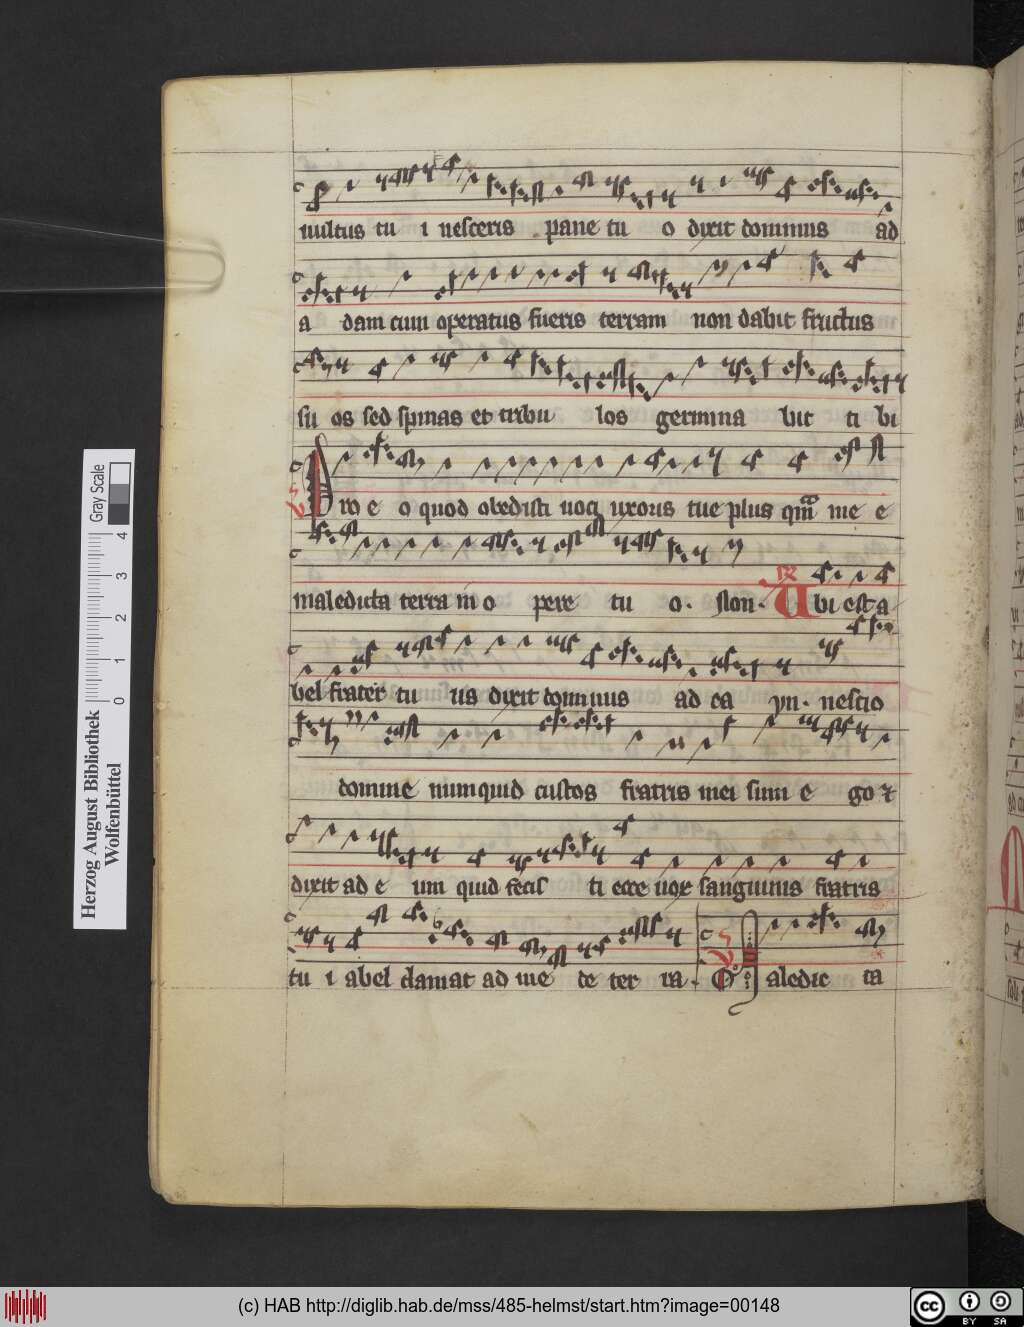 uultus tu i uesceris pane tu o dixit dominus ad
a dam cum operatus fueris terram non dabit fructus
su os sed spinas et tribu los germina bit ti bi
Pro e o quod obedisti uoci uxoris tue plus qm me e
maledicta terra in o pere tu o. Non. Ubi est a
bel frater tu us dixit dominus ad ca yn. nescio
domine numquid custos fratris mei sum e go et
dixit ad e um quid fecis ti ecce uox sanguinis fratris
tu i abel clamat ad me de ter ra. Maledic ta
Herzog August Bibliothek
Wolfenbüttel
0 1 2 3 4
Gray Scale
(c) HAB http://diglib.hab.de/mss/485-helmst/start.htm?image=00148
cc BY SA